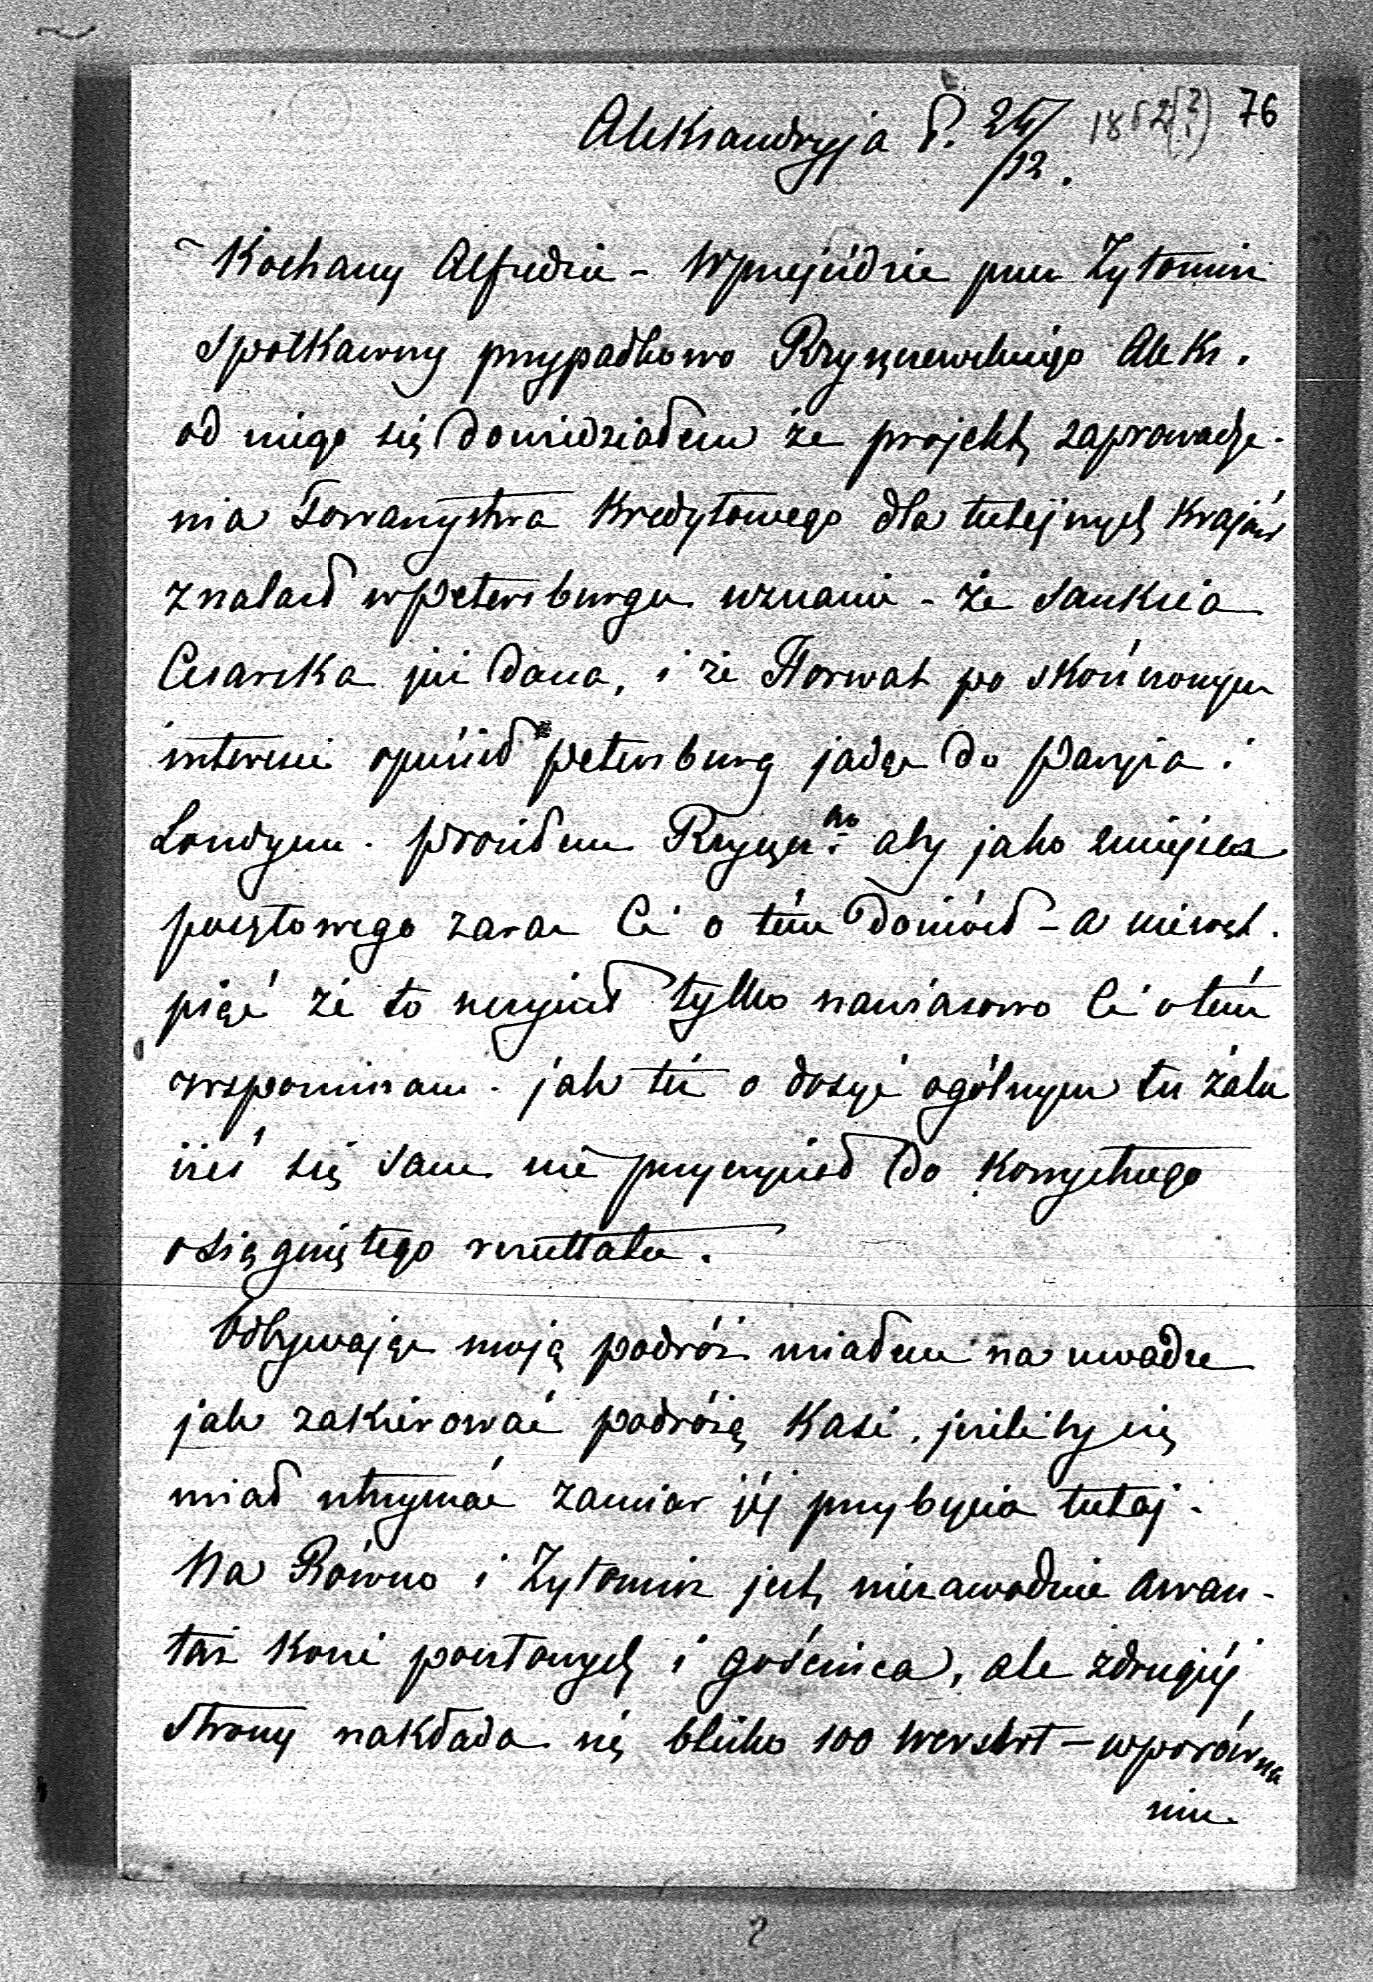 76
1862(?)
Aleksandryja d. 24/12.
Kochany Alfredzie - W przejeździe przez Żytomirz
spotkawszy przypadkowo Rzyszczewskiego Aleks.
od niego się dowiedziałem że projekt zaprowadze-
nia Towarzystwa Kredytowego dla tutejszych Krajów
znalazł w Petersburgu uznanie - że sankcia
Cesarska już dana, i że Horwat po skończonym
interesie opuścił Petersburg jadąc do Paryża i
Londynu. Prosiłem Rzyszcz. aby jako z miejsca
pocztowego zaraz Ci o tém doniósł - a niewąt-
piąc że to uczynił tylko nawiasowo Ci o tém
wspominam. jak też o dosyć ogólnym tu żalu
iżeś się sam nie przyczynił do Korzystnego
osiągniętego rezultatu.
Odbywając moją podróż miałem na uwadze
jak zakierować podróżą Kasi, jeżeliby się
miał utrzymać zamiar jéj przybycia tutaj.
Na Równo i Żytomirz jest niezawodnie awan-
taż Koni pocztowych i gościńca, ale z drugiéj
strony nakłada się blisko 100 werst - w porówna
niu
2